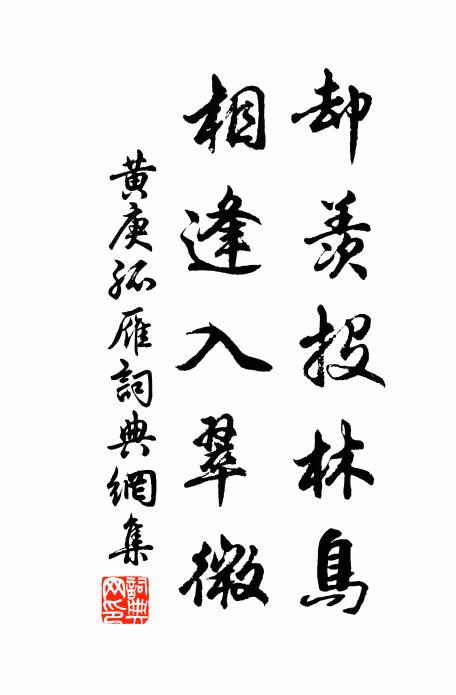 却羨投林鳥
相逢入翠微
黃庚孤雁詞典網集
詞典網印